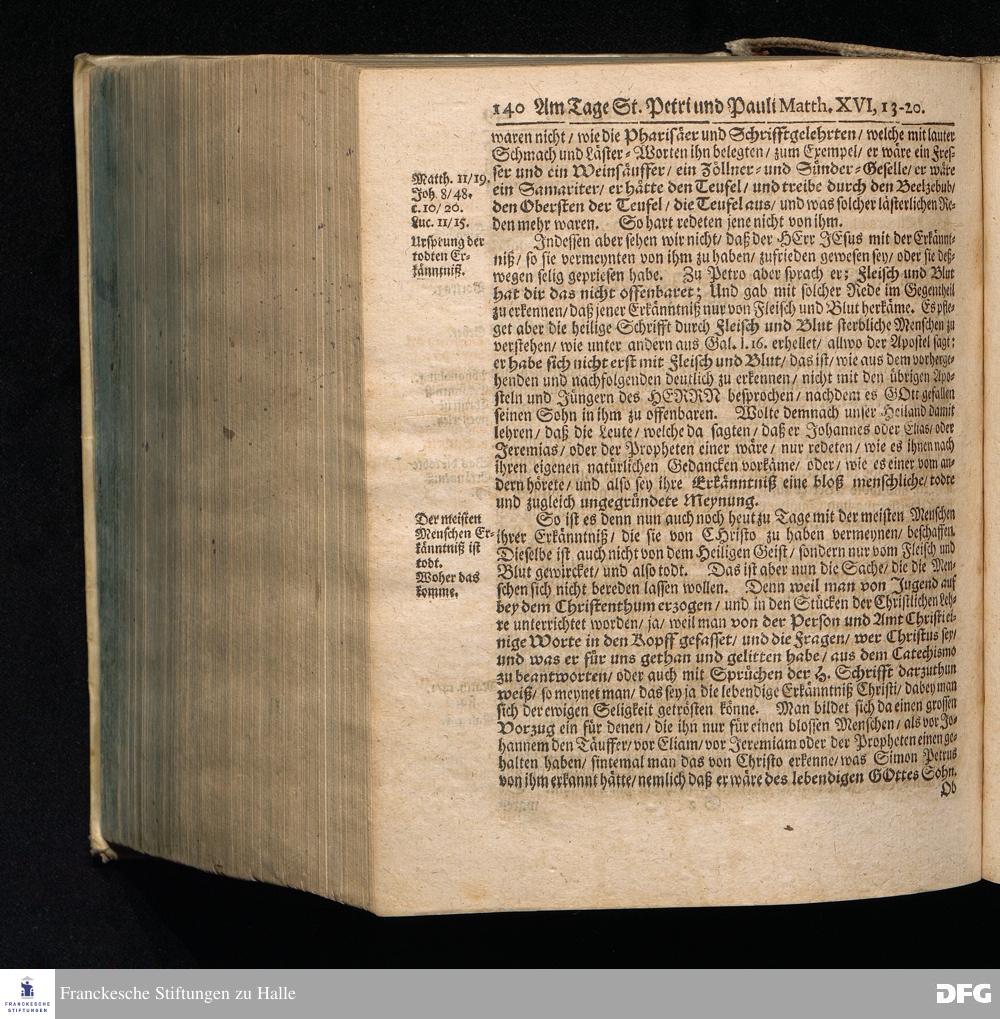 140 Am Tage St. Petri und Pauli Matth. XVI, 13-20.
waren nicht / wie die Pharisäer und Schrifftgelehrten / welche mit lauter
Schmach und Läster-Worten ihn belegten / zum Exempel / er wäre ein Fres-
ser und ein Weinsäuffer / ein Zöllner- und Sünder-Geselle / er wäre
ein Samariter / er hätte den Teufel / und treibe durch den Beelzebub /
den Obersten der Teufel / die Teufel aus / und was solcher lästerlichen Re-
den mehr waren. So hart redeten jene nicht von ihm.
Matth. 11/19.
Joh. 8/48.
c. 10/20.
Luc. 11/15.
Ursprung der
todten Er-
känntniß.
Indessen aber sehen wir nicht / daß der HErr JEsus mit der Erkännt-
niß / so sie vermeynten von ihm zu haben / zufrieden gewesen sey / oder sie deß-
wegen selig gepriesen habe. Zu Petro aber sprach er: Fleisch und Blut
hat dir das nicht offenbaret; Und gab mit solcher Rede im Gegentheil
zu erkennen / daß jener Erkänntniß nur von Fleisch und Blut herkäme. Es pfle-
get aber die heilige Schrifft durch Fleisch und Blut sterbliche Menschen zu
verstehen / wie unter andern aus Gal. I. 16. erhellet / allwo der Apostel sagt:
er habe sich nicht erst mit Fleisch und Blut / das ist / wie aus dem vorherge-
henden und nachfolgenden deutlich zu erkennen / nicht mit den übrigen Apo-
steln und Jüngern des HERRN besprochen / nachdem es GOtt gefallen
seinen Sohn in ihm zu offenbaren. Wolte demnach unser Heiland damit
lehren / daß die Leute / welche da sagten / daß er Johannes oder Elias / oder
Jeremias / oder der Propheten einer wäre / nur redeten / wie es ihnen nach
ihren eigenen natürlichen Gedancken vorkäme / oder / wie es einer vom an-
dern hörete / und also sey ihre Erkänntniß eine bloß menschliche / todte
und zugleich ungegründete Meynung.
Der meisten
Menschen Er-
känntniß ist
todt.
Woher das
komme.
So ist es denn nun auch noch heut zu Tage mit der meisten Menschen
ihrer Erkänntniß / die sie von CHristo zu haben vermeynen / beschaffen.
Dieselbe ist auch nicht von dem Heiligen Geist / sondern nur vom Fleisch und
Blut gewircket / und also todt. Das ist aber nun die Sache / die die Men-
schen sich nicht bereden lassen wollen. Denn weil man von Jugend auf
bey dem Christenthum erzogen / und in den Stücken der Christlichen Leh-
re unterrichtet worden / ja / weil man von der Person und Amt Christi ei-
nige Worte in den Kopff gefasset / und die Fragen / wer Christus sey /
und was er für uns gethan und gelitten habe / aus dem Catechismo
zu beantworten / oder auch mit Sprüchen der H. Schrifft darzuthun
weiß / so meynet man / das sey ja die lebendige Erkänntniß Christi / dabey man
sich der ewigen Seligkeit getrösten könne. Man bildet sich da einen grossen
Vorzug ein für denen / die ihn nur für einen blossen Menschen / als vor Jo-
hannem den Täuffer / vor Eliam / vor Jeremiam oder der Propheten einen ge-
halten haben / sintemal man das von Christo erkenne / was Simon Petrus
von ihm erkannt hätte / nemlich daß er wäre des lebendigen GOttes Sohn.
Ob
FRANCKESCHE
STIFTUNGEN
Franckesche Stiftungen zu Halle
DFG